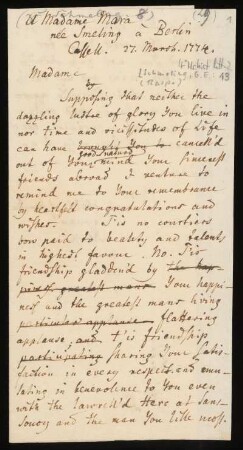 (à Madame Mara
née Smeling a Berlin
Cassell. 27. March. 1774.
Madame
Supposing that neither the
dazzling lustre of glory You live in
nor time and vicissitudes of Life
can have brought You to cancel'd
good nature
out of Your mind Your sincerest
friends abroad I venture to
remind me to Your remembrance
by heartfelt congratulations and
wishes. Tis no courtiers
bow paid to beauty and talents
in highest favour. No. Tis
friendship gladden'd by the hap-
piness greatest mans Your happi-
ness and the greatest mans living
particular applause flattering
applause, and tis friendship
participating sharing Your satis-
faction in every respect and emu-
lating in benevolence to You even
with the lawrel'd Hero at Sans-
soucy and the man You little ness.